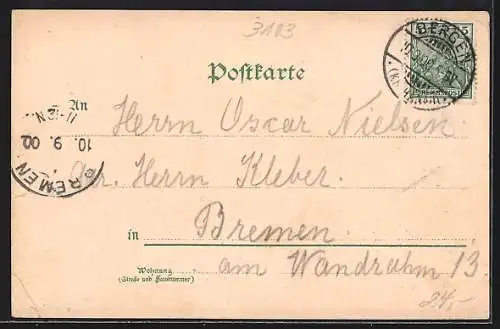 3103
5
BERGEN
Postkarte
An
Herrn Oscar Nielsen
11-12 N
10. 9. 00
BREMEN
Adr. Herrn Kleber.
in Bremen
Wohnung
(Straße und Hausnummer)
am Wandrahm 13.
24,-